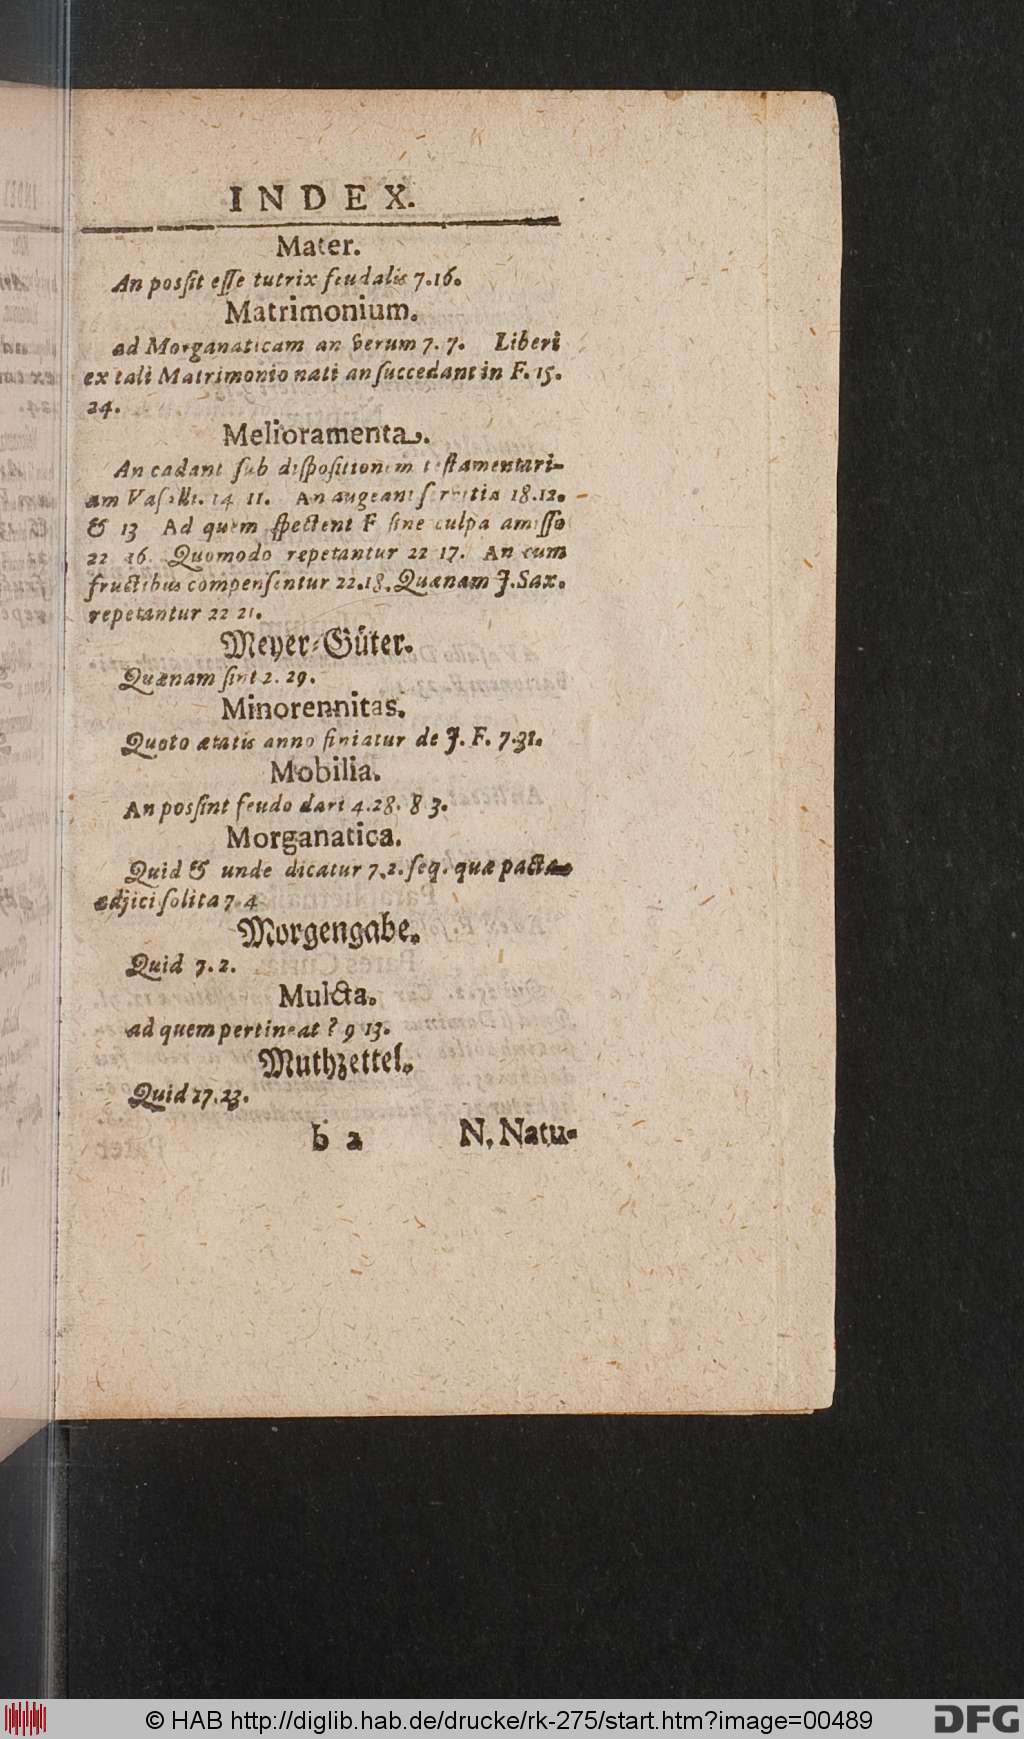 INDEX.
Mater.
An possit esse tutrix feudalis 7.16.
Matrimonium.
ad Morganaticam an verum 7. 7. Liberi
ex tali Matrimonio nati an succedant in F. 15.
24.
Melioramenta.
An cadant sub dispositionem testamentari-
am Vasalli. 14 11. An augeant servitia 18.12.
& 13 Ad quem spectent F sine culpa amisso
22 16. Quomodo repetantur 22 17. An cum
fructibus compensentur 22.18. Quænam J. Sax.
repetantur 22 21.
Meyer-Güter.
Quænam sint 2. 29.
Minorennitas.
Quoto ætatis anno finiatur de J. F. 7.31.
Mobilia.
An possint feudo dari 4.28. 8 3.
Morganatica.
Quid & unde dicatur 7.2. seq. quæ pacta
adjici solita 7.4
Morgengabe.
Quid 7. 2.
Mulcta.
ad quem pertineat? 9 13.
Muthzettel.
Quid 17.23.
b 2 N. Natu-
© HAB http://diglib.hab.de/drucke/rk-275/start.htm?image=00489
DFG